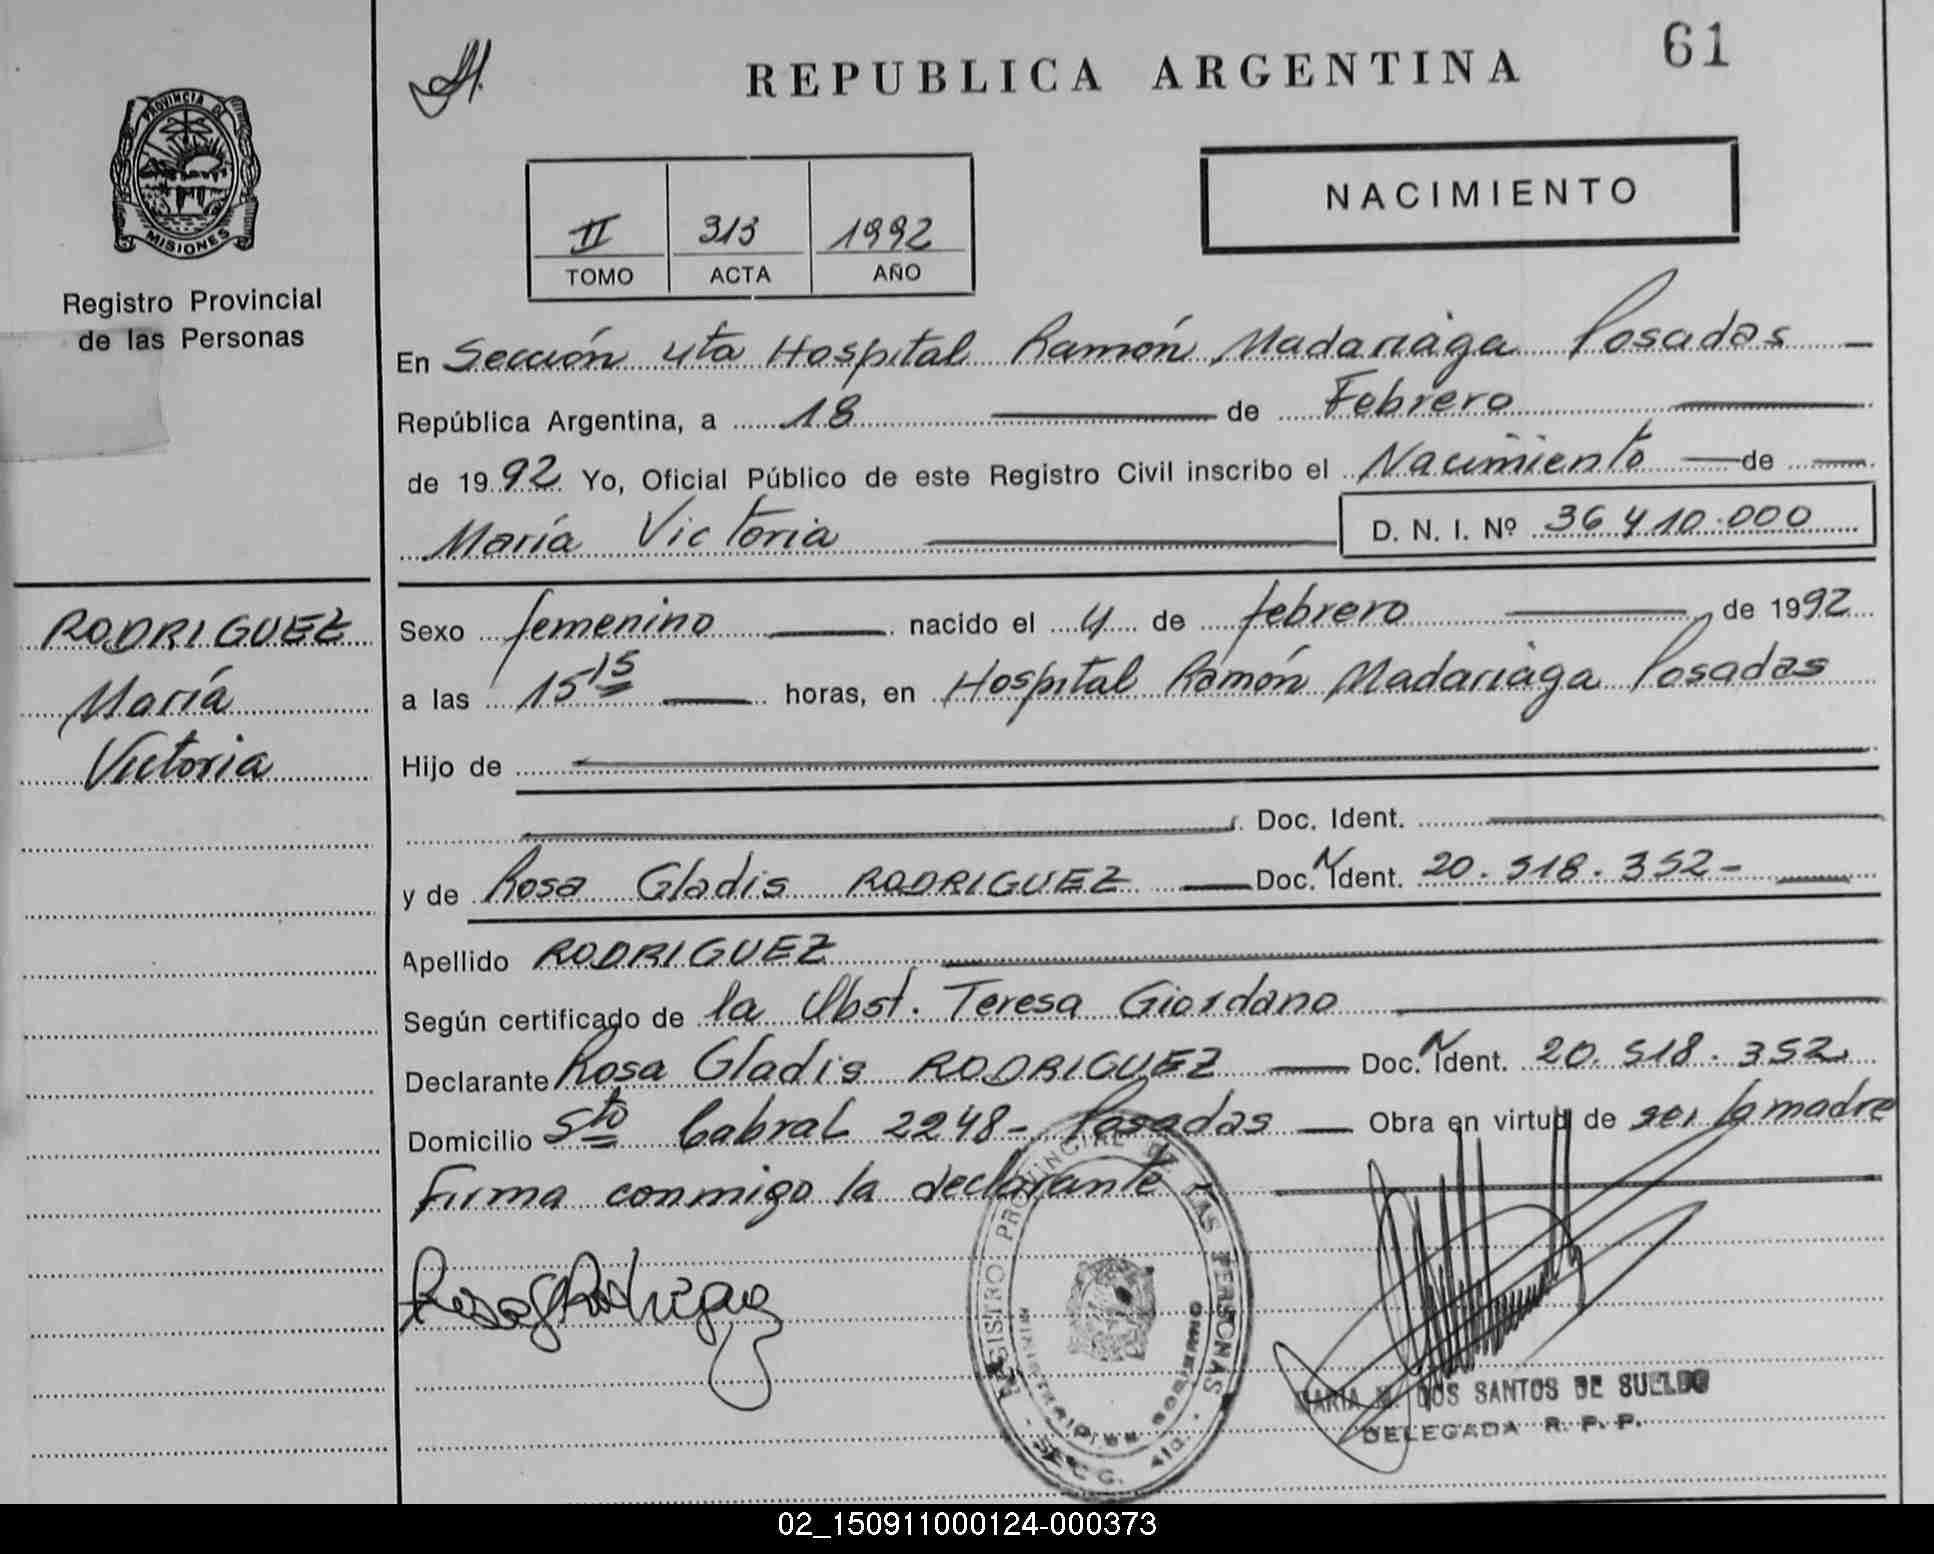 61
REPUBLICA ARGENTINA
PROVINCIA DE
MISIONES
Registro Provincial
de las Personas
NACIMIENTO
II 313 1992
TOMO ACTA AÑO
En Sección 4ta Hospital Ramón Madariaga Posadas —
República Argentina, a 18 — de Febrero —
de 1992 Yo, Oficial Público de este Registro Civil inscribo el Nacimiento — de —
María Victoria — D. N. I. Nº 36.410.000
RODRIGUEZ
María
Victoria
Sexo femenino — nacido el 4 de febrero — de 1992
a las 15 15 — horas, en Hospital Ramón Madariaga Posadas
Hijo de —
— Doc. Ident. —
y de Rosa Gladis RODRIGUEZ — Doc. N Ident. 20.518.352- —
Apellido RODRIGUEZ —
Según certificado de la Obst. Teresa Giordano —
Declarante Rosa Gladis RODRIGUEZ — Doc. N Ident. 20.518.352
Domicilio Sto Cabral 2248- Posadas — Obra en virtud de ser la madre
Firma conmigo la declarante —
Rosa G Rodriguez
REGISTRO PROVINCIAL DE LAS PERSONAS
MINISTERIO DE GOBIERNO
SECC. 4ta.
MARIA M. DOS SANTOS DE SUELDO
DELEGADA R. P. P.
02_150911000124-000373